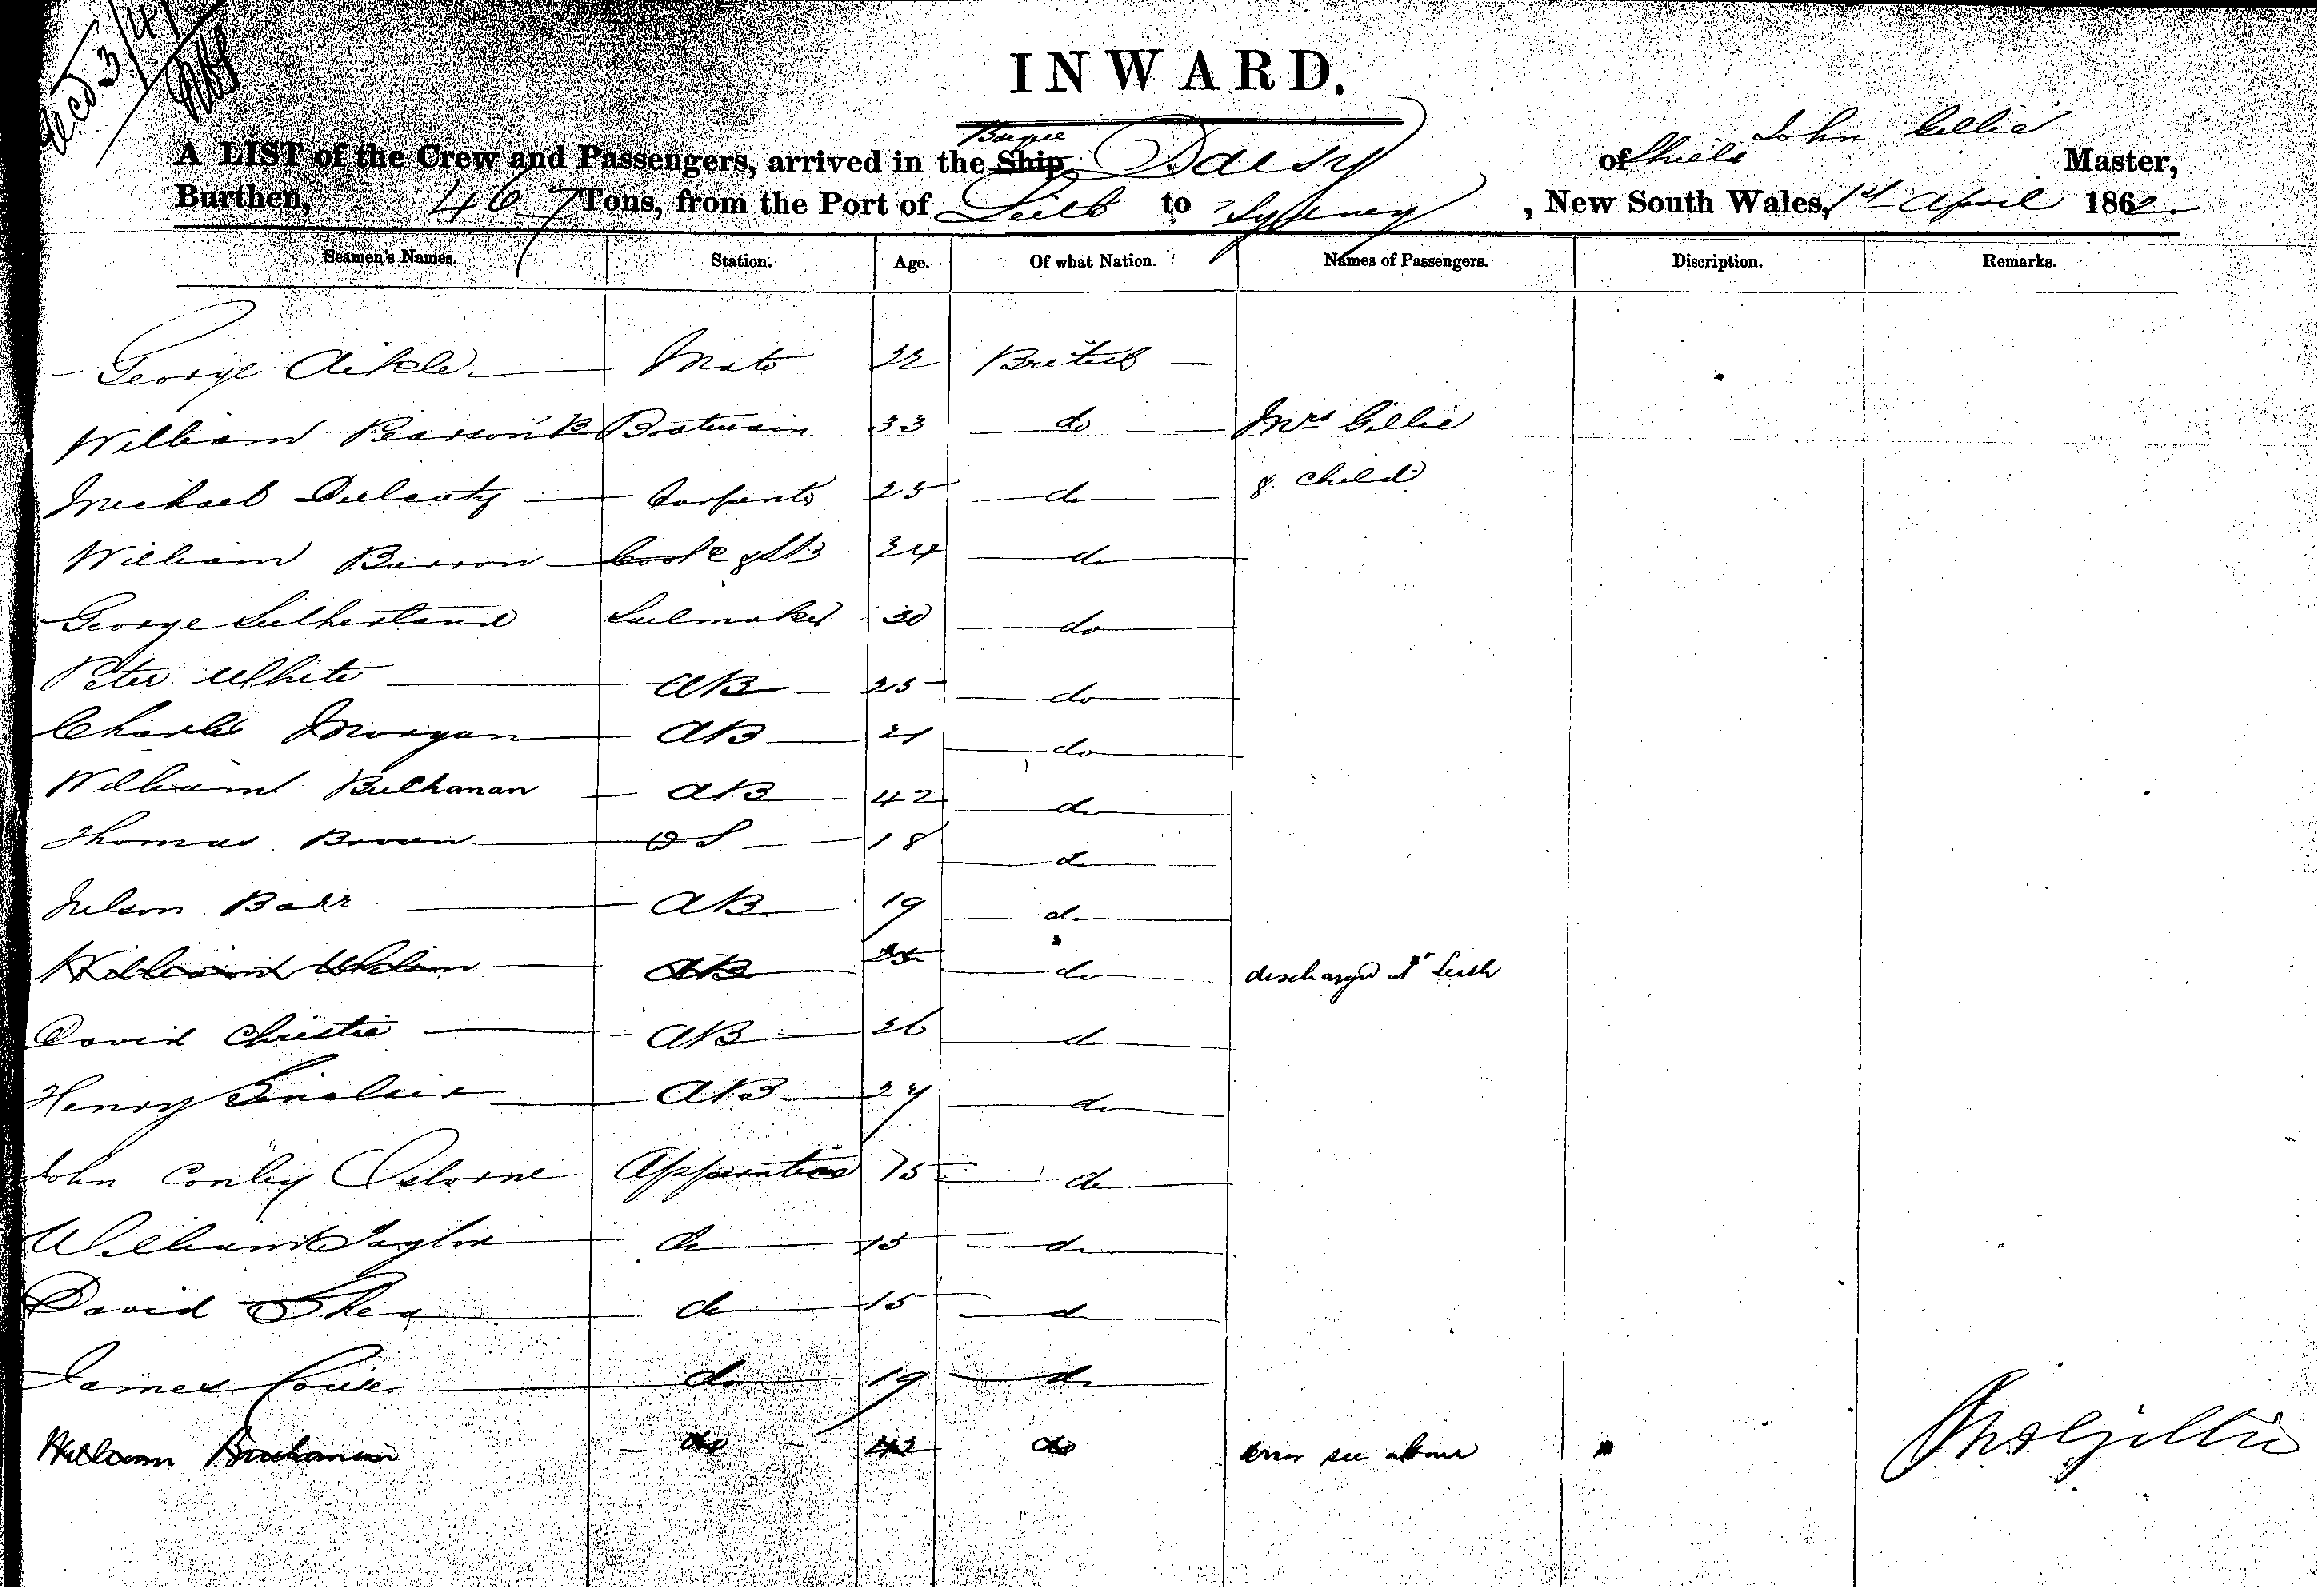 Recd 3/4/
INWARD.
A LIST of the Crew and Passengers, arrived in the Ship Barque Daisy of Shields John Gillie Master,
Burthen, 467 Tons, from the Port of Leith to Sydney, New South Wales, 1st April 186
Seamen's Names. Station. Age. Of what Nation. Names of Passengers. Discription. Remarks.
George Mate British
William Pearson Boatswain 33 do Mrs Gillie
Michael Carpenter 25 do & child
William Barron Cook & AB 24 do
George Sutherland Sailmaker 30 do
Peter White AB 25 do
Charles Morgan AB 21 do
William Bulkanan AB 42 do
Thomas OS 18 do
Nelson Barr AB 19 do
William AB do discharged at Leith
David Christie AB 26 do
Henry Sinclair AB 27 do
John Conley Osborne Apprentice 15 do
William Taylor do 15 do
David Shea do 15 do
James do 19 do
William Buchanan do 42 do error see above
Jno Gillie